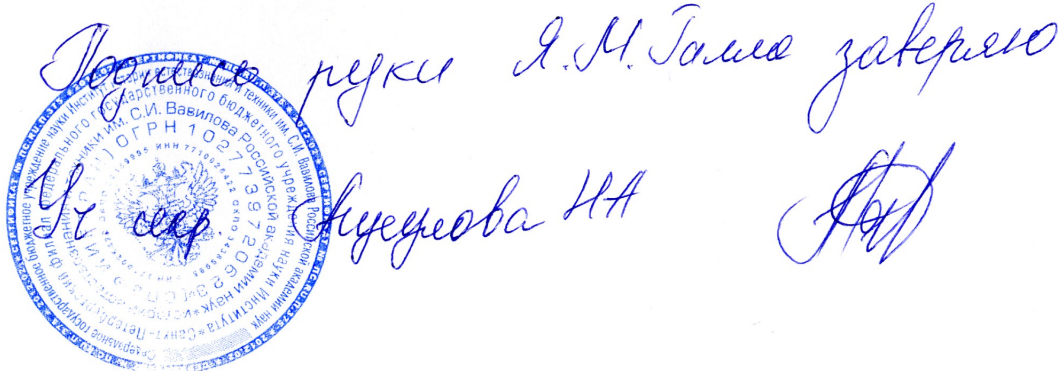 Подпись руки Я.М. Галла заверяю
Уч секр. Ащеулова НА
Федеральное государственное бюджетное учреждение науки Институт истории естествознания и техники им. С.И. Вавилова Российской академии наук
Санкт-Петербургский филиал Федерального государственного бюджетного учреждения науки Института
истории естествознания и техники им. С.И. Вавилова Российской академии наук
ОГРН 1027739720623